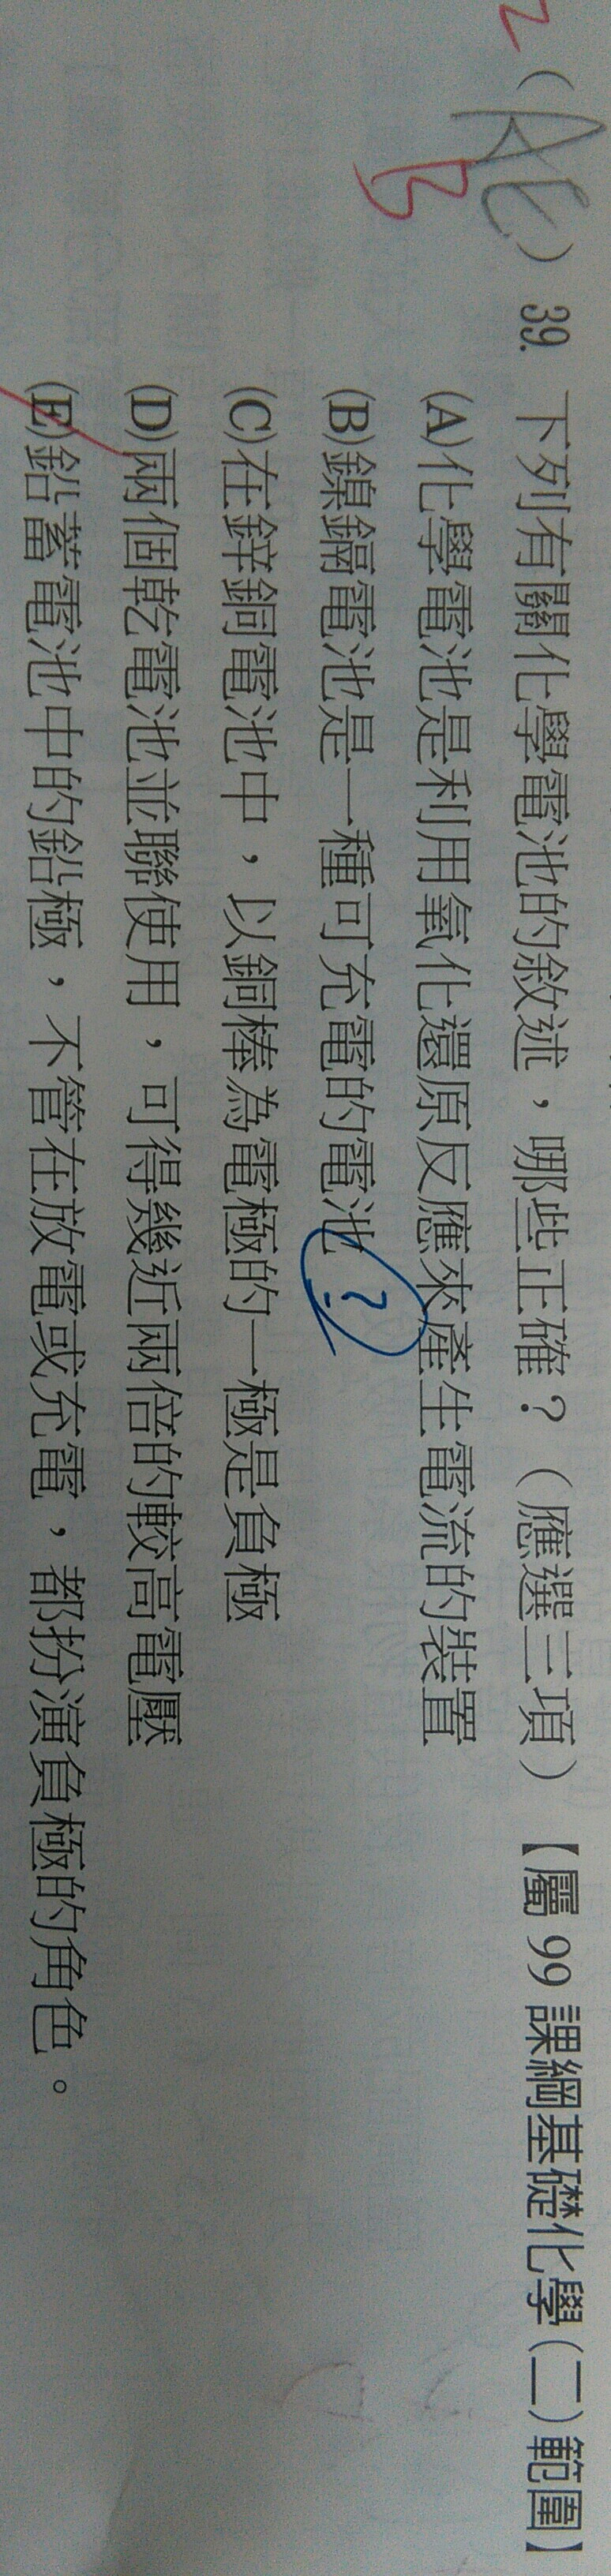 2
(AE) 39. 下列有關化學電池的敘述，哪些正確？（應選三項）【屬 99 課綱基礎化學(二)範圍】
B
(A)化學電池是利用氧化還原反應來產生電流的裝置
(B)鎳鎘電池是一種可充電的電池 ?
(C)在鋅銅電池中，以銅棒為電極的一極是負極
(D)兩個乾電池並聯使用，可得幾近兩倍的較高電壓
(E)鉛蓄電池中的鉛極，不管在放電或充電，都扮演負極的角色。